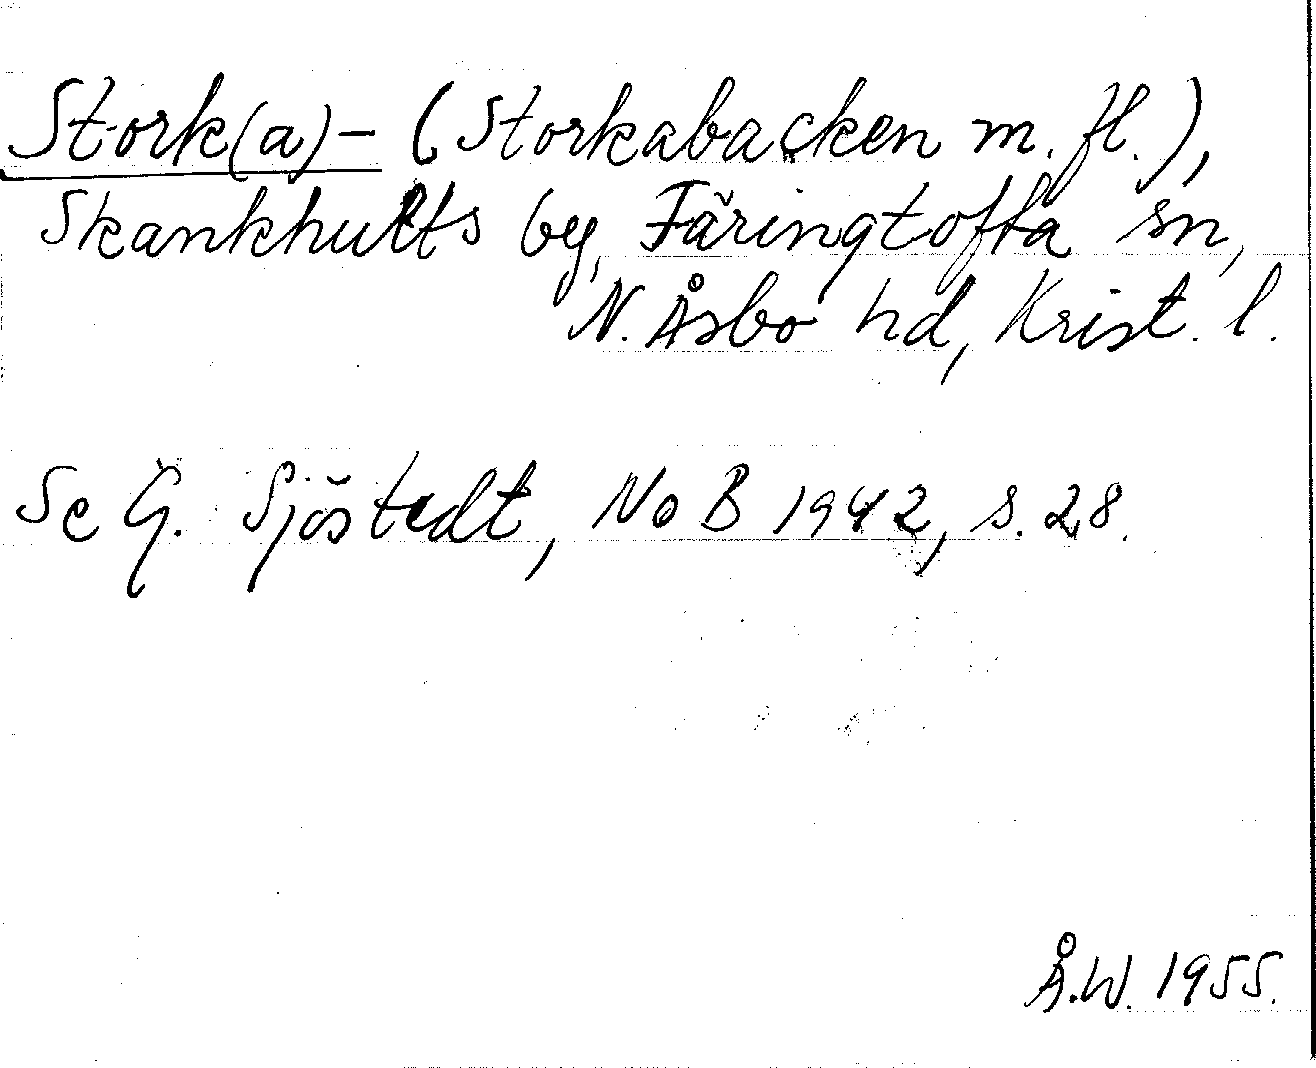 Stork(a)- (Storkabacken m. fl.),
Skankhults by, Färingtofta sn,
N. Åsbo hd, Krist. l.
Se G. Sjöstedt, NoB 1942, s. 28.
Å.W. 1955.